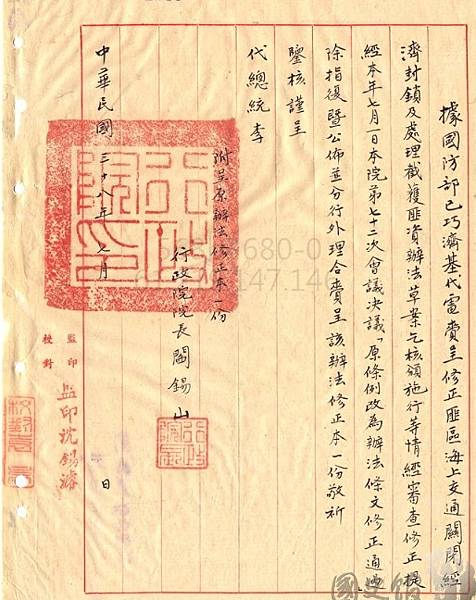 據國防部已巧濟基代電賫呈修正匪區海上交通關閉經
濟封鎖及處理截獲匪資辦法草案乞核頒施行等情經審查修正提
經本年七月一日本院第七十二次會議決議「原條例改為辦法條文修正通過
除指復暨公佈並分行外理合賫呈該辦法修正本一份敬祈
鑒核謹呈
代總統李
附呈原辦法修正本一份
行政院院長閻錫山
行政院印
中華民國三十八年七月 日
監印
校對
監印沈錫濤